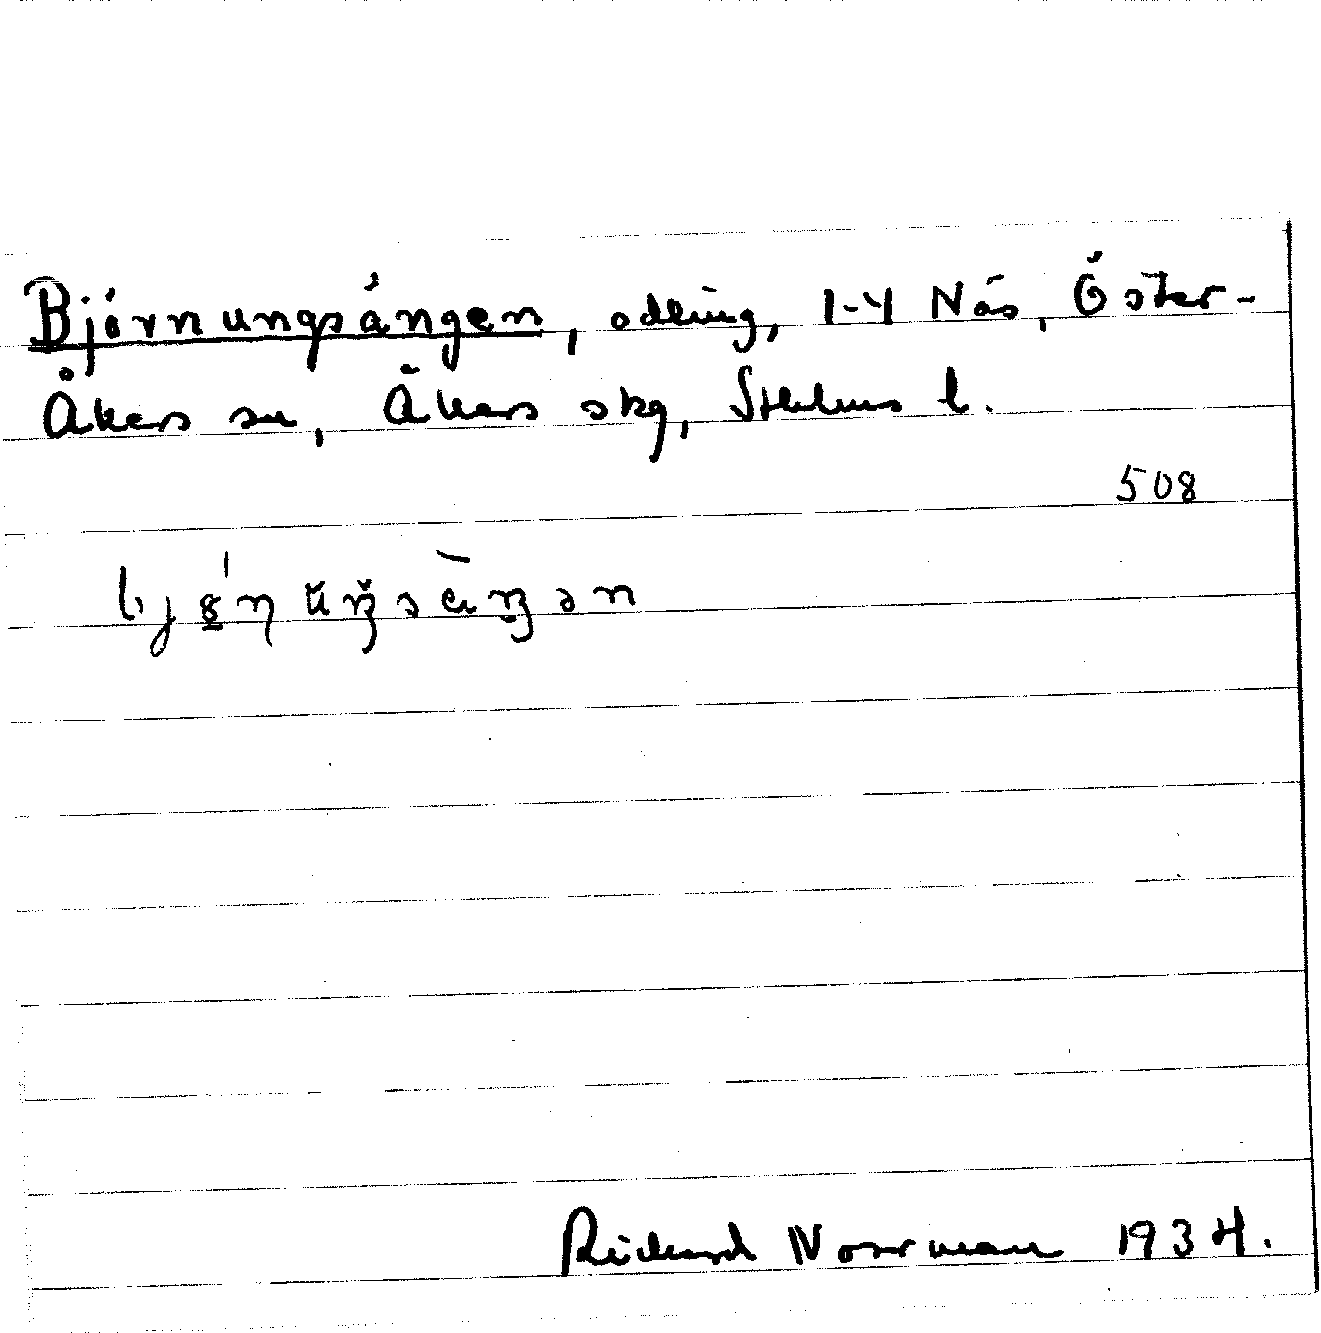 Björnungsängen, odling, 1-4 Näs, Öster-
Åkers sn, Åkers skg, Sthlms l.
508
Rickard Norrman 1934.